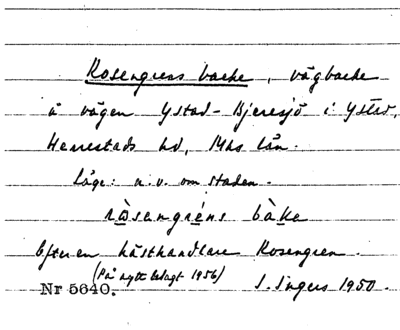 Rosengrens backe, vägbacke
å vägen Ystad-Bjeresjö i Ystad,
Herrestads hd, Mhs län.
Läge: n.v. om staden.
ròsengréns bàke
Efter en hästhandlare Rosengren.
(På nytt belagt 1956)
Nr 5640. I. Ingers 1950.